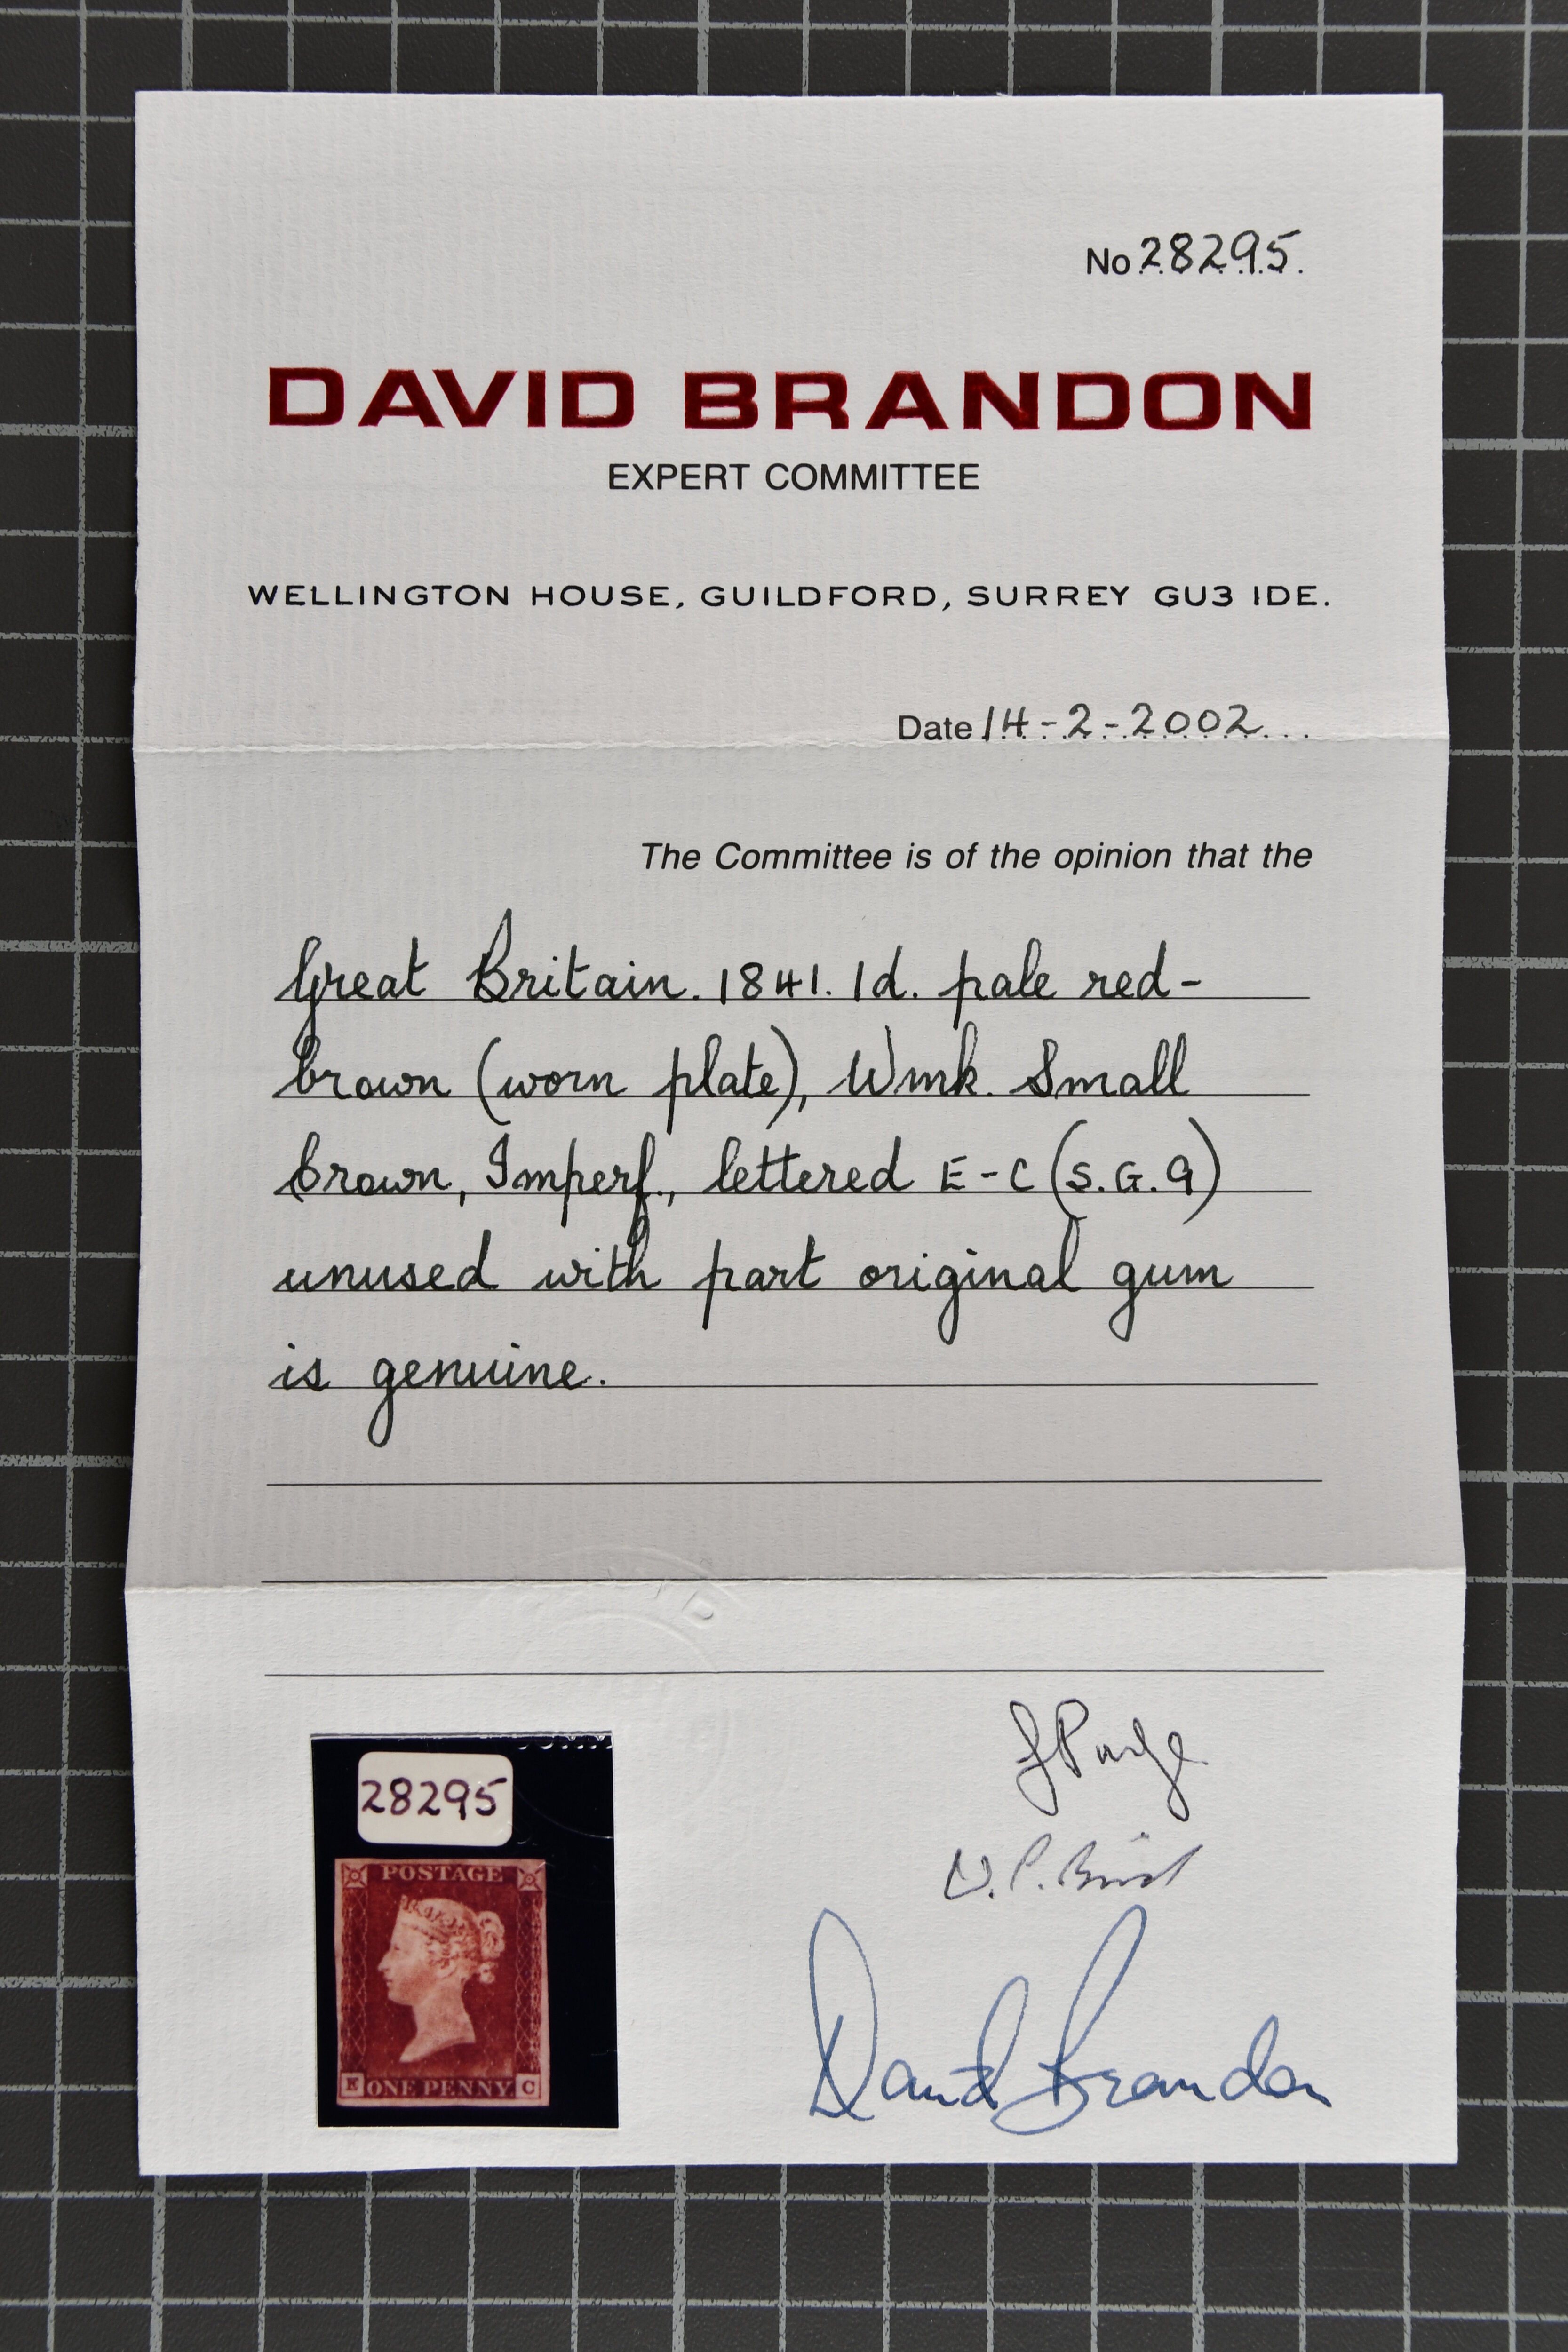 No 28295.
DAVID BRANDON
EXPERT COMMITTEE
WELLINGTON HOUSE, GUILDFORD, SURREY GU3 1DE.
Date 14-2-2002...
The Committee is of the opinion that the
Great Britain. 1841. 1d. pale red-
brown (worn plate), Wmk. Small
Crown, Imperf., lettered E-C (S.G.9)
unused with part original gum
is genuine.
28295
POSTAGE
E ONE PENNY C
David Brandon